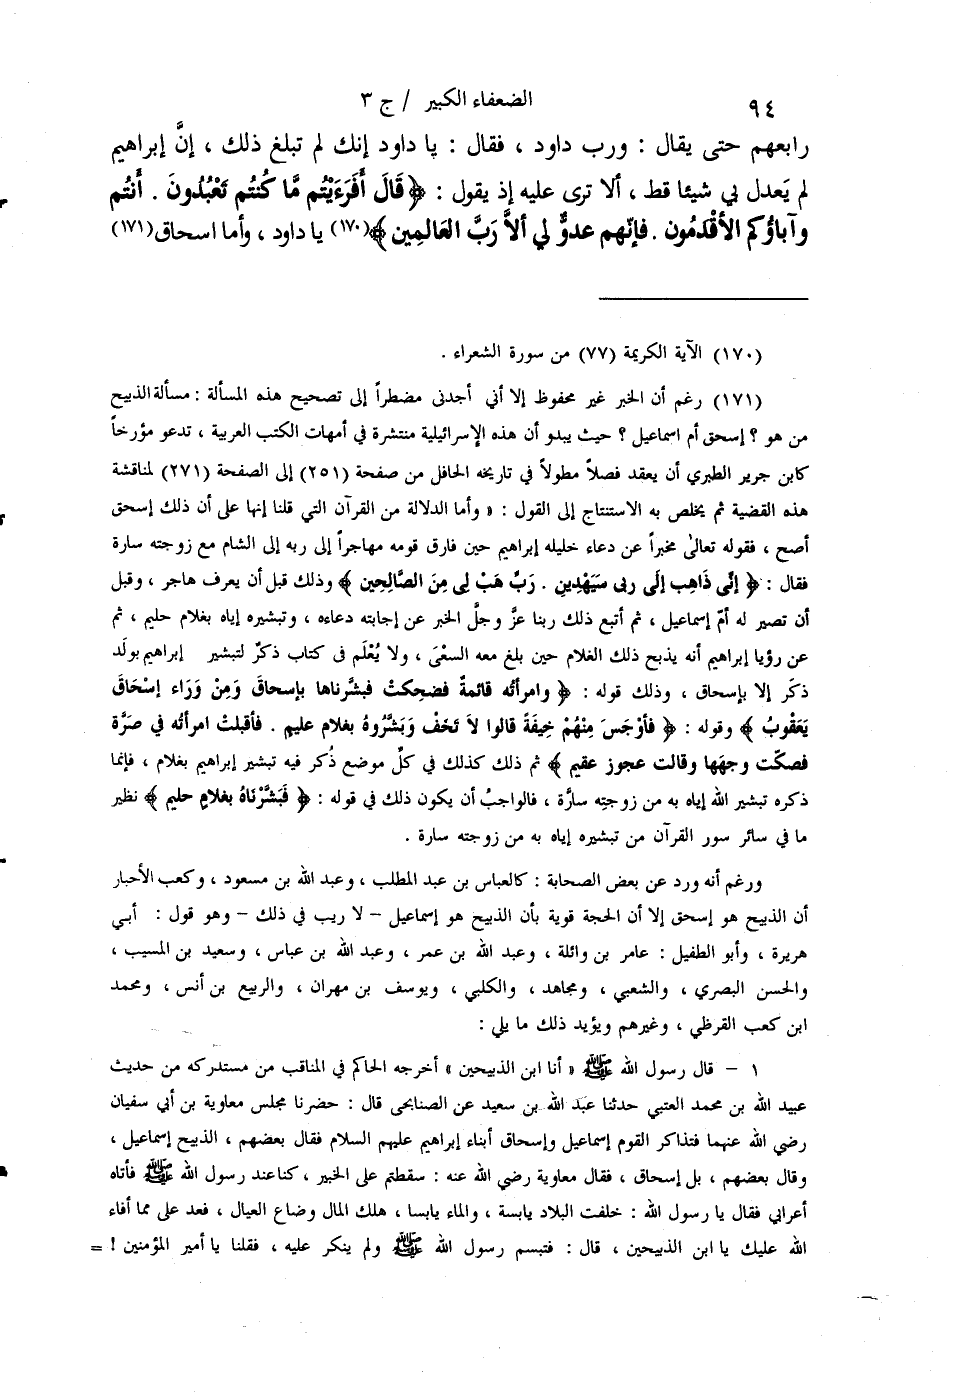 ٩٤
الضعفاء الكبير / ج ٣
رابعهم حتى يقال : ورب داود ، فقال : يا داود إنك لم تبلغ ذلك ، إنَّ إبراهيم
لم يَعدل بي شيئا قط ، ألا ترى عليه إذ يقول : ﴿ قَالَ أَفَرَءَيْتُم مَّا كُنتُم تَعْبُدُونَ . أَنتُم
وآباؤكم الأقْدَمُون . فإنّهم عدوٌّ لي ألاَّ رَبَّ العَالمِين ﴾(١٧٠) يا داود ، وأما اسحاق(١٧١)
(١٧٠) الآية الكريمة (٧٧) من سورة الشعراء .
(١٧١) رغم أن الخبر غير محفوظ إلا أني أجدني مضطراً إلى تصحيح هذه المسألة : مسألة الذبيح
من هو ؟ إسحق أم اسماعيل ؟ حيث يبدو أن هذه الإسرائيلية منتشرة في أمهات الكتب العربية ، تدعو مؤرخاً
كابن جرير الطبري أن يعقد فصلاً مطولاً في تاريخه الحافل من صفحة (٢٥١) إلى الصفحة (٢٧١) لمناقشة
هذه القضية ثم يخلص به الاستنتاج إلى القول : « وأما الدلالة من القرآن التي قلنا إنها على أن ذلك إسحق
أصح ، فقوله تعالىٰ مخبراً عن دعاء خليله إبراهيم حين فارق قومه مهاجراً إلى ربه إلى الشام مع زوجته سارة
فقال : ﴿ إنِّى ذَاهِب إلَى ربى سَيَهْدِينِ . رَبِّ هَبْ لِى مِنَ الصَّالِحِين ﴾ وذلك قبل أن يعرف هاجر ، وقبل
أن تصير له أمّ إسماعيل ، ثم أتبع ذلك ربنا عزَّ وجلَّ الخبر عن إجابته دعاءه ، وتبشيره إياه بغلام حليم ، ثم
عن رؤيا إبراهيم أنه يذبح ذلك الغلام حين بلغ معه السعْىَ ، ولا يُعْلَم فى كتاب ذكرٌ لتبشير إبراهيم بولَد
ذكَر إلا بإسحاق ، وذلك قوله : ﴿ وامرأتُه قائمةٌ فضحِكتْ فبشَّرناها بإسحاقَ وَمِنْ وَرَاء إسْحَاقَ
يَعَقوبُ ﴾ وقوله : ﴿ فأوْجَسَ مِنْهُمْ خِيفَةً قالوا لاَ تَخَفْ وَبَشَّرُوهُ بغلام عليم . فأقبلتْ امرأتُه في صَرَّة
فصكّت وجهَها وقالت عجوز عقيم ﴾ ثم ذلك كذلك في كلِّ موضع ذُكر فيه تبشير إبراهيم بغلام ، فإنما
ذكره تبشير الله إياه به من زوجتِه سارَّة ، فالواجبُ أن يكون ذلك في قوله : ﴿ فَبَشَّرْنَاهُ بغلامٍ حليم ﴾ نظير
ما في سائر سور القرآن من تبشيره إياه به من زوجته سارة .
ورغم أنه ورد عن بعض الصحابة : كالعباس بن عبد المطلب ، وعبد الله بن مسعود ، وكعب الأحبار
أن الذبيح هو إسحق إلا أن الحجة قوية بأن الذبيح هو إسماعيل – لا ريب في ذلك – وهو قول : أبي
هريرة ، وأبو الطفيل : عامر بن واثلة ، وعبد الله بن عمر ، وعبد الله بن عباس ، وسعيد بن المسيب ،
والحسن البصري ، والشعبي ، ومجاهد ، والكلبي ، ويوسف بن مهران ، والربيع بن أنس ، ومحمد
ابن كعب القرظي ، وغيرهم ويؤيد ذلك ما يلي :
١ – قال رسول الله ﷺ « أنا ابن الذبيحين » أخرجه الحاكم في المناقب من مستدركه من حديث
عبيد الله بن محمد العتبي حدثنا عبد الله بن سعيد عن الصنابحى قال : حضرنا مجلس معاوية بن أبي سفيان
رضي الله عنهما فتذاكر القوم إسماعيل وإسحاق أبناء إبراهيم عليهم السلام فقال بعضهم ، الذبيح إسماعيل ،
وقال بعضهم ، بل إسحاق ، فقال معاوية رضي الله عنه : سقطتم على الخبير ، كنا عند رسول الله ﷺ فأتاه
أعرابي فقال يا رسول الله : خلفت البلاد يابسة ، والماء يابسا ، هلك المال وضاع العيال ، فعد على مما أفاء
الله عليك يا ابن الذبيحين ، قال : فتبسم رسول الله ﷺ ولم ينكر عليه ، فقلنا يا أمير المؤمنين ! =